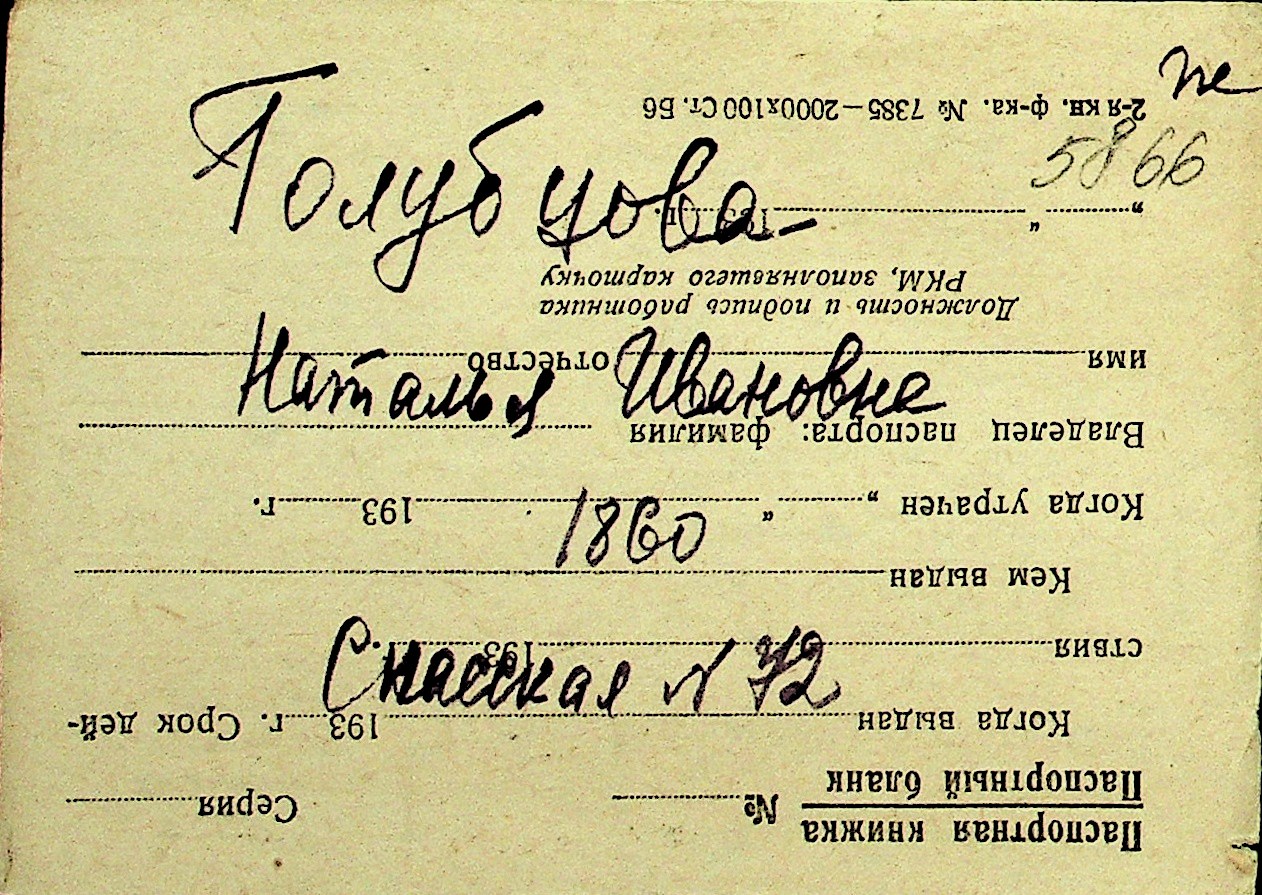 Голубцова
Наталья Ивановна
1860
Спасская N 72
5866
Паспортная книжка
Паспортный бланк
№ Серия
Когда выдан 193 г. Срок дей-
ствия 193 г.
Кем выдан
Когда утрачен „ “ 193 г.
Владелец паспорта: фамилия
имя отчество
Должность и подпись работника
РКМ, заполнявшего карточку
„ “ 193 г.
2-я кн. ф-ка. № 7385—2000х100 Ст. Б6